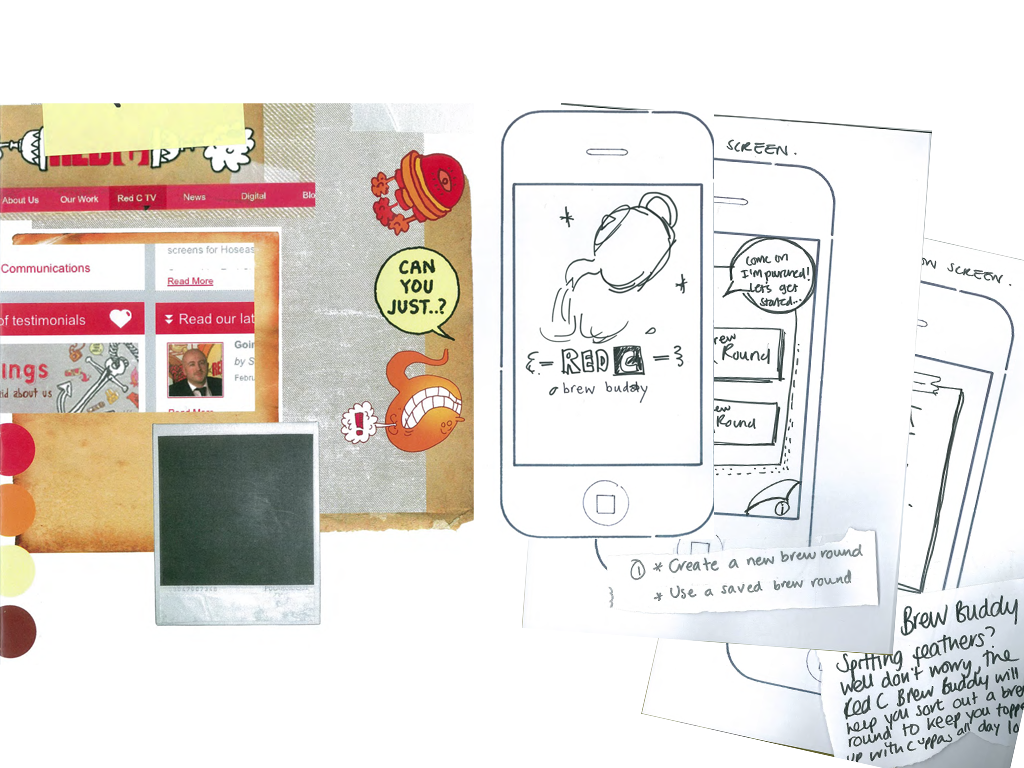 RED
About Us
Our Work
Red C TV
News
Digital
screens for Hoseas
Communications
Read More
of testimonials
Read our lat
Goin
by S
Febru
ings
id about us
Read More
CAN
YOU
JUST..?
!
RED C
a brew buddy
SCREEN.
Come on
I'm parched!
Let's get
started...
rew
Round
ew
Round
i
① * Create a new brew round
* Use a saved brew round
ON SCREEN.
Brew Buddy
Spitting feathers?
Well don't worry, the
Red C Brew Buddy will
help you sort out a bre
round to keep you topp
up with cuppas all day lo